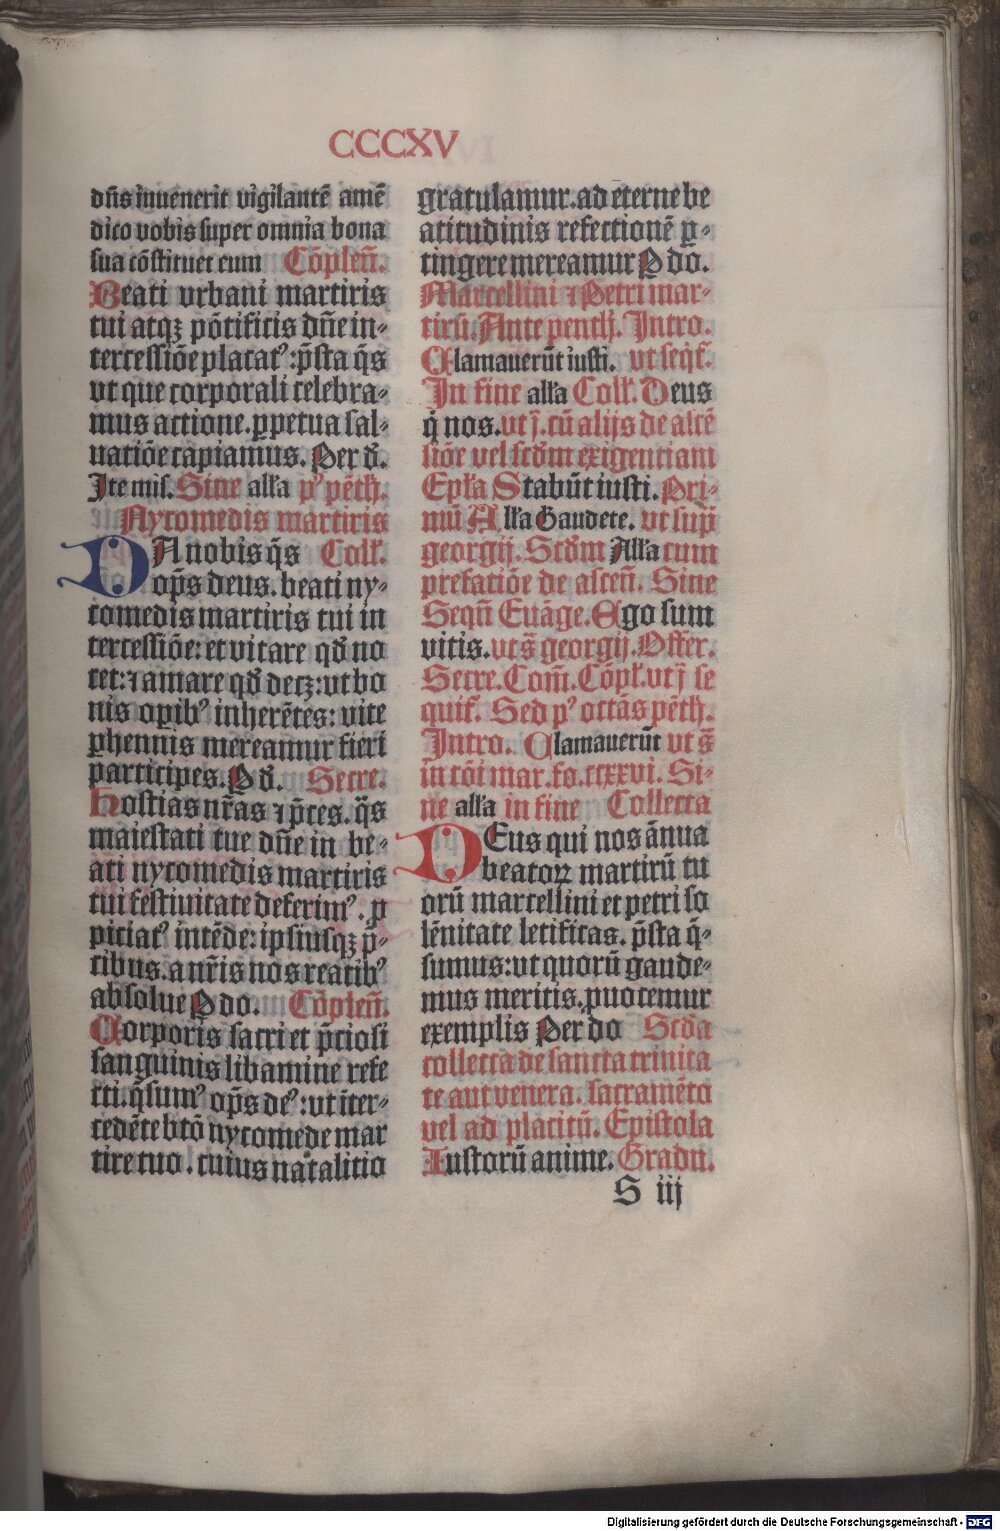 CCCXV
dn̄s inuenerit vigilantē amē
dico vobis super omnia bona
sua cōstituet eum Cōplen̄.
Beati vrbani martiris
tui atqꝫ pōtificis dn̄e in⸗
tercessiōe placatꝰ: p̄sta q̄s
vt que corporali celebra⸗
mus actione. ꝑpetua sal⸗
uatiōe capiamus. Per d̄.
Ite mis. Sine all'a pꝰ pēth.
Nycomedis martiris
DA nobis q̄s Coll'.
op̄s deus. beati ny⸗
comedis martiris tui in
tercessiōe: et vitare qd̄ no
cet: ⁊ amare qd̄ decꝫ: vt bo
nis oꝑibꝰ inherētes: vite
ꝑhennis mereamur fieri
participes. P d̄. Secre.
Hostias nr̄as ⁊ p̄ces. q̄s
maiestati tue dn̄e in be⸗
ati nycomedis martiris
tui festiuitate deferimꝰ. ꝓ
piciatꝰ intēde: ipsiusqꝫ p̄⸗
cibus. a nr̄is nos reatibꝰ
absolue P do. Cōplen̄.
Corporis sacri et p̄ciosi
sanguinis libamine refe
cti. q̄sumꝰ op̄s deꝰ: vt īter⸗
cedēte btō nycomede mar
tire tuo. cuius natalitio
gratulamur. ad eterne be
atitudinis refectionē ꝑ⸗
tingere mereamur P do.
Marcellini ⁊ Petri mar⸗
tirū. Ante penth. Intro.
Clamauerūt iusti. vt seqt̄.
In fine all'a Coll'. Deus
q̄ nos. vt j̄. cū alijs de ascē
siōe vel scd̄m exigentiam
Epl'a Stabūt iusti. Pri⸗
mū All'a Gaudete. vt sup̄
georgij. Scd̄m All'a cum
prefatiōe de ascen̄. Sine
Seqū Euāge. Ego sum
vitis. vt s̄ georgij. Offer̄.
Secre. Com̄. Cōpl'. vt j̄ se
quit̄. Sed pꝰ octās pēth.
Intro. Clamauerūt vt s̄
in cōi mar. fo. ccxxvi. Si⸗
ne all'a in fine Collecta
DEus qui nos ānua
beatoꝝ martirū tu
orū marcellini et petri so
lēnitate letificas. p̄sta q̄⸗
sumus: vt quorū gaude⸗
mus meritis. ꝓuocemur
exemplis Per do Scd̄a
collecta de sancta trinita
te aut venera. sacramēto
vel ad placitū. Epistola
Iustorū anime. Gradu.
S iij
Digitalisierung gefördert durch die Deutsche Forschungsgemeinschaft - DFG